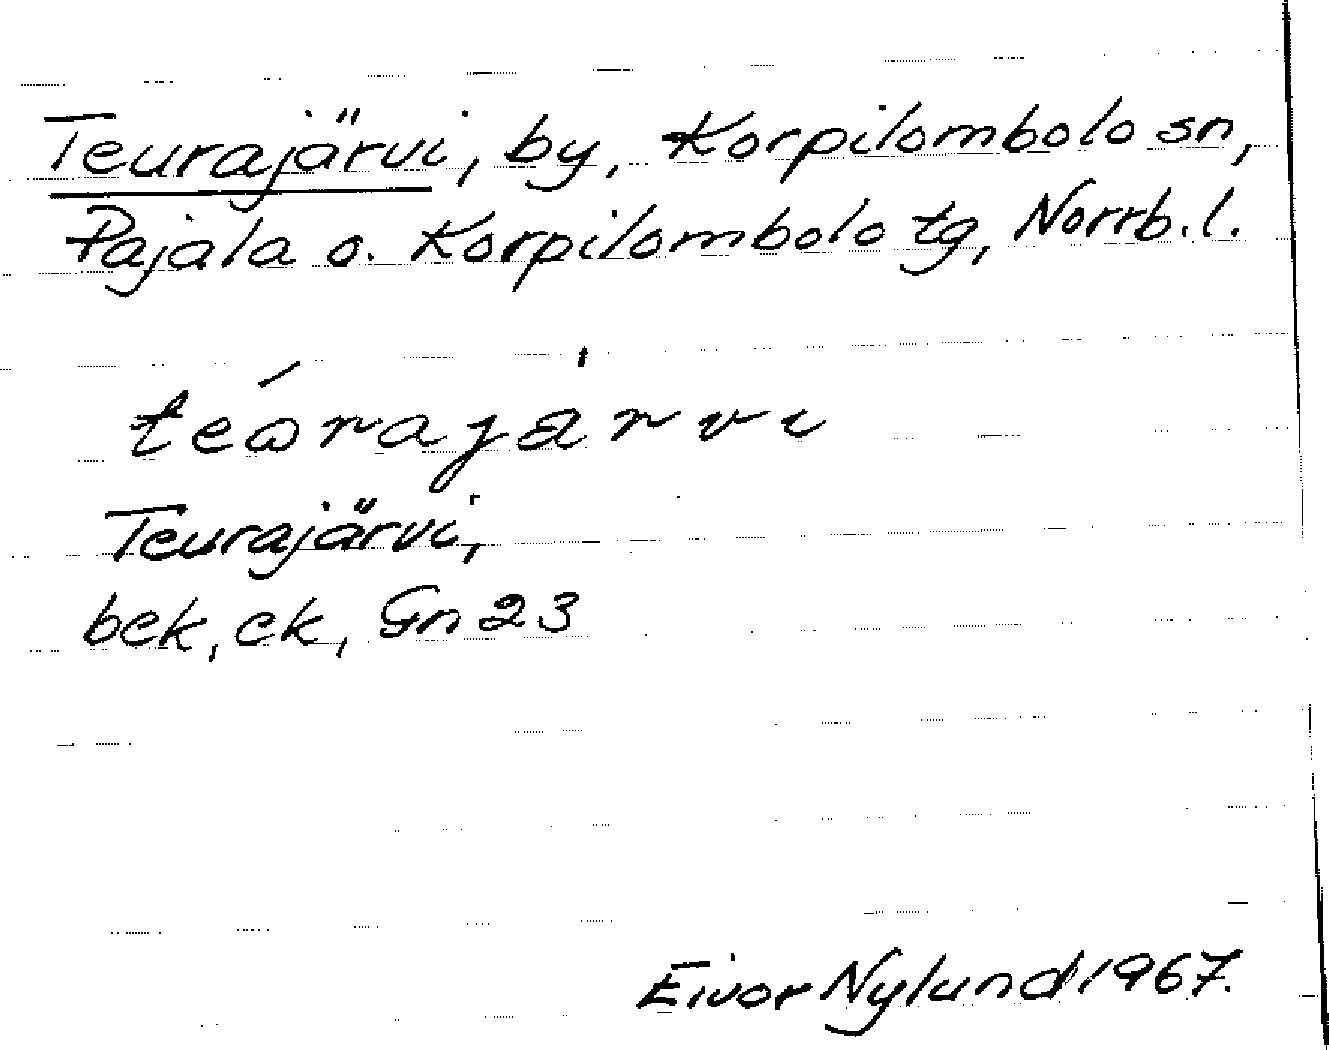 Teurajärvi, by, Korpilombolo sn,
Pajala o. Korpilombolo tg, Norrb.l.
Teurajärvi,
bek, ek, Gn 23
Eivor Nylund 1967.